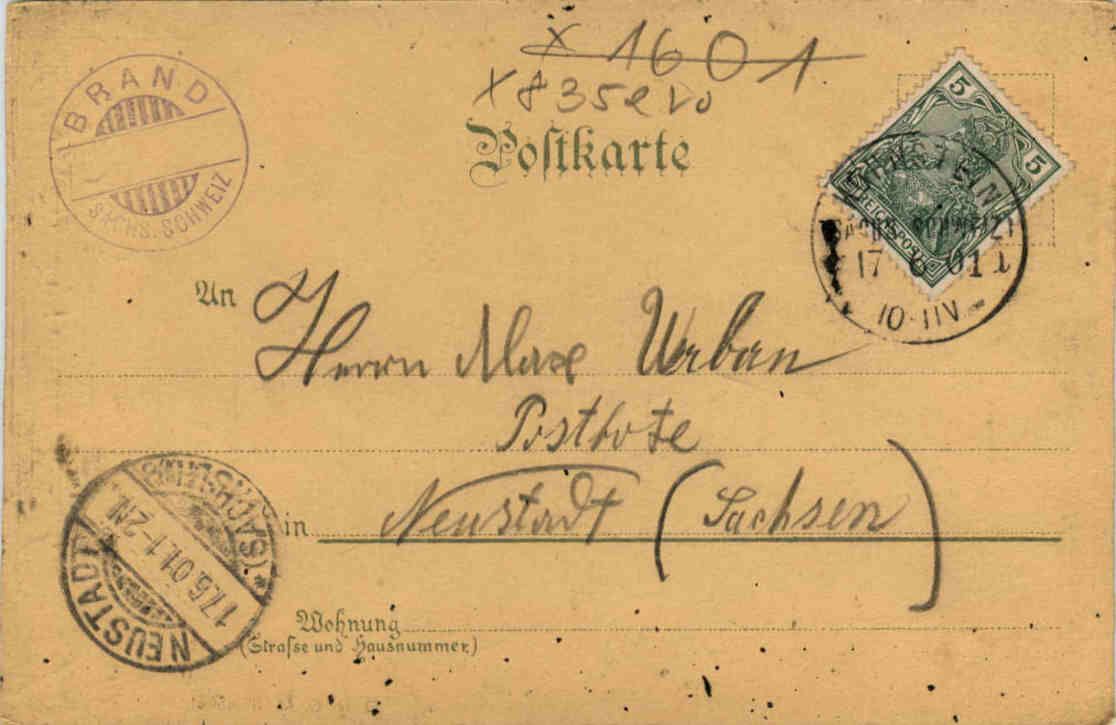 x 1601
x 835
BRAND
SÄCHS. SCHWEIZ
Postkarte
5
5
REICHSPOST
17 6 01
10-11V
An
Herrn Max Urban
Postbote
in Neustadt (Sachsen)
NEUSTADT
(SACHSEN)
17.6.01.1-2N.
Wohnung
(Strasse und Hausnummer.)